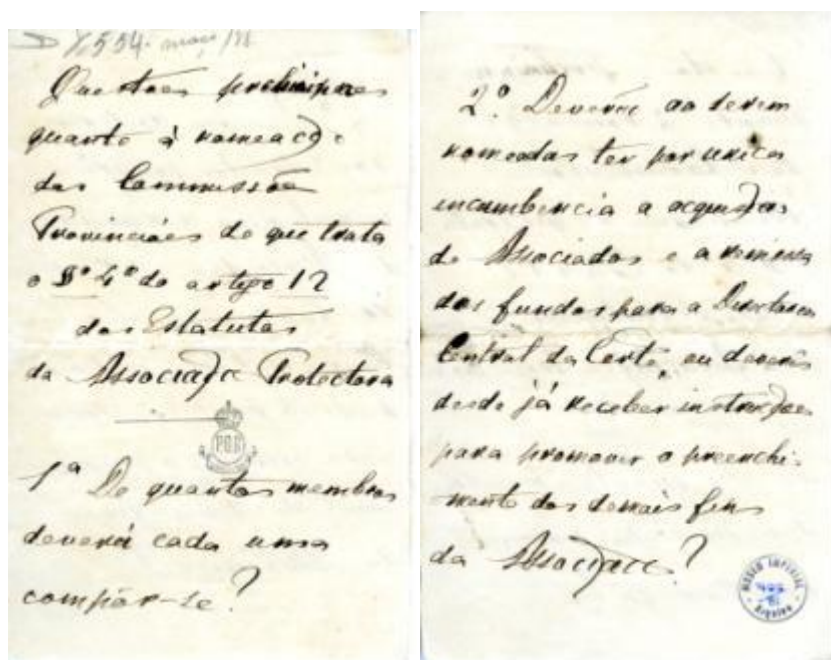 D X 554. maço
Questões preliminares
quanto á nomeação
das Commissões
Provinciáes de que trata
o §º 4º do artigo 12
dos Estatutos
da Associação Protectora
POB
1ª De quantos membros
deverá cada uma
compôr-se?
2º. Deverão ao serem
nomeadas ter por unica
incumbencia a acquisição
de Associados e a remessa
dos fundos para a Directoria
Central da Corte, ou deverão
desde já receber instrucções
para promover o preenchi-
mento dos demais fins
da Associação?
MUSEU IMPERIAL
Arquivo